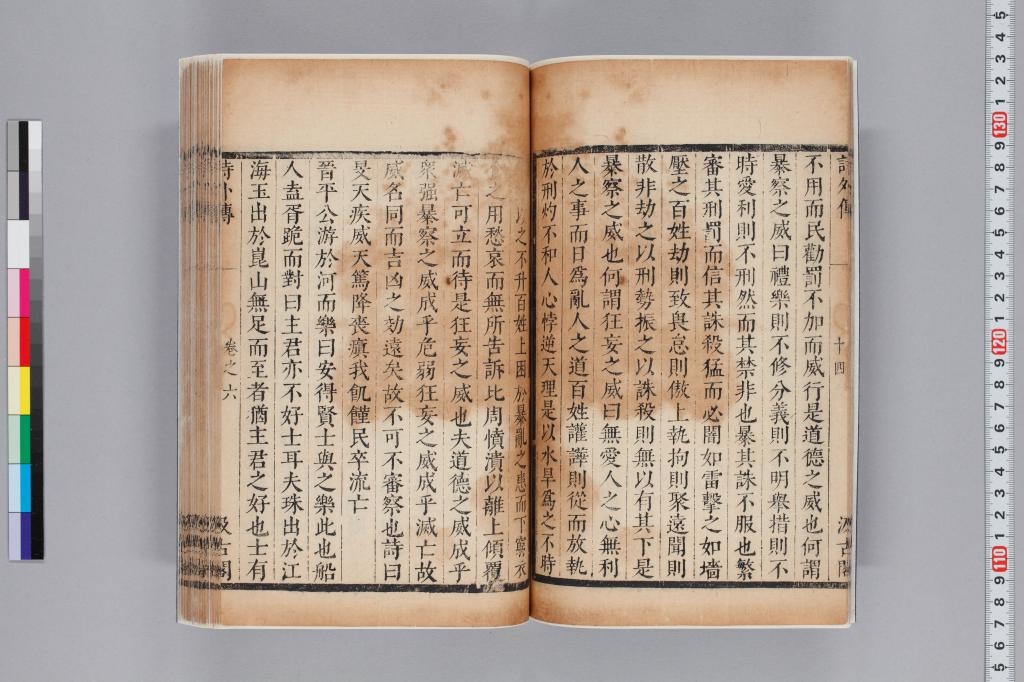 詩外傳 十四 汲古閣
不用而民勸罰不加而威行是道德之威也何謂
暴察之威曰禮樂則不修分義則不明舉措則不
時愛利則不刑然而其禁非也暴其誅不服也繁
審其刑罰而信其誅殺猛而必闇如雷擊之如墻
壓之百姓劫則致畏怠則傲上執拘則聚遠聞則
散非劫之以刑勢振之以誅殺則無以有其下是
暴察之威也何謂狂妄之威曰無愛人之心無利
人之事而日爲亂人之道百姓讙譁則從而放執
於刑灼不和人心悖逆天理是以水旱爲之不時
以之不升百姓上困於暴亂之患而下窮衣
之用愁哀而無所告訴比周憤潰以離上傾覆
滅亡可立而待是狂妄之威也夫道德之威成乎
衆强暴察之威成乎危弱狂妄之威成乎滅亡故
威名同而吉凶之効遠矣故不可不審察也詩曰
旻天疾威天篤降喪瘨我飢饉民卒流亡
晉平公游於河而樂曰安得賢士與之樂此也船
人盍胥跪而對曰主君亦不好士耳夫珠出於江
海玉出於崑山無足而至者猶主君之好也士有
詩外傳 卷之六 汲古閣